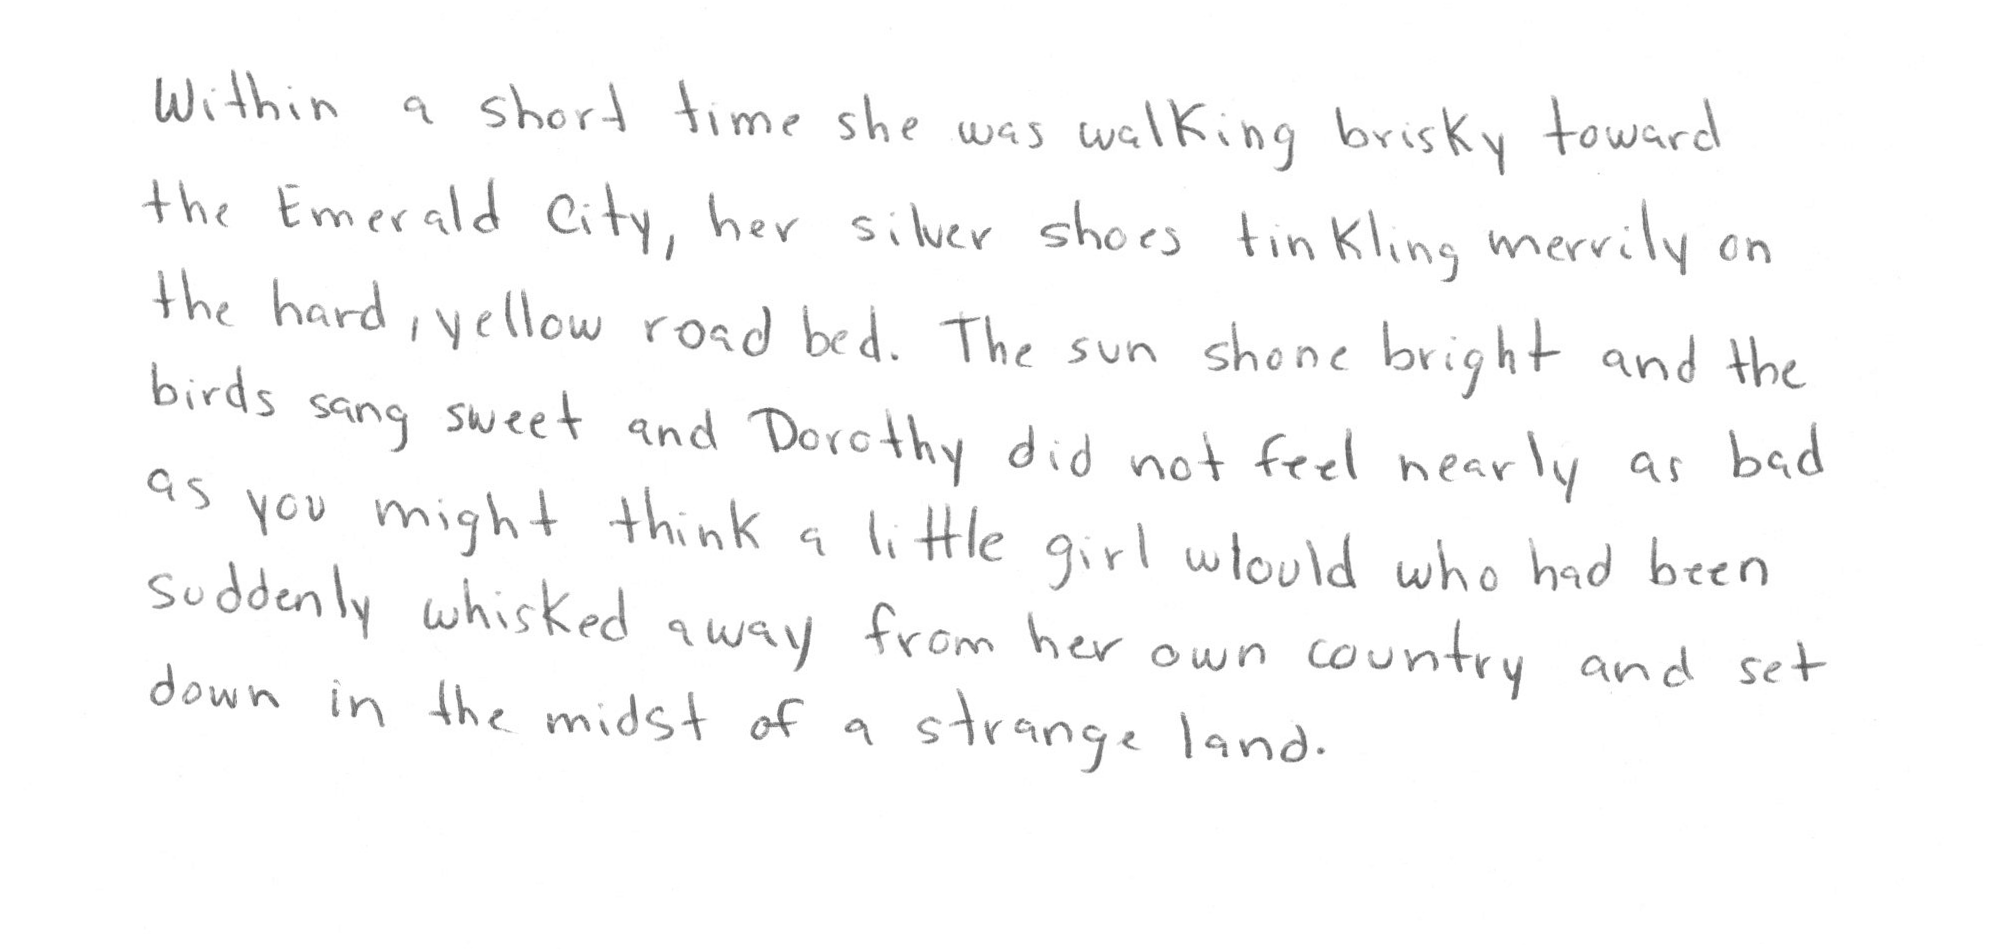 Within a short time she was walking brisky toward
the Emerald City, her silver shoes tinkling merrily on
the hard, yellow road bed. The sun shone bright and the
birds sang sweet and Dorothy did not feel nearly as bad
as you might think a little girl wlould who had been
suddenly whisked away from her own country and set
down in the midst of a strange land.